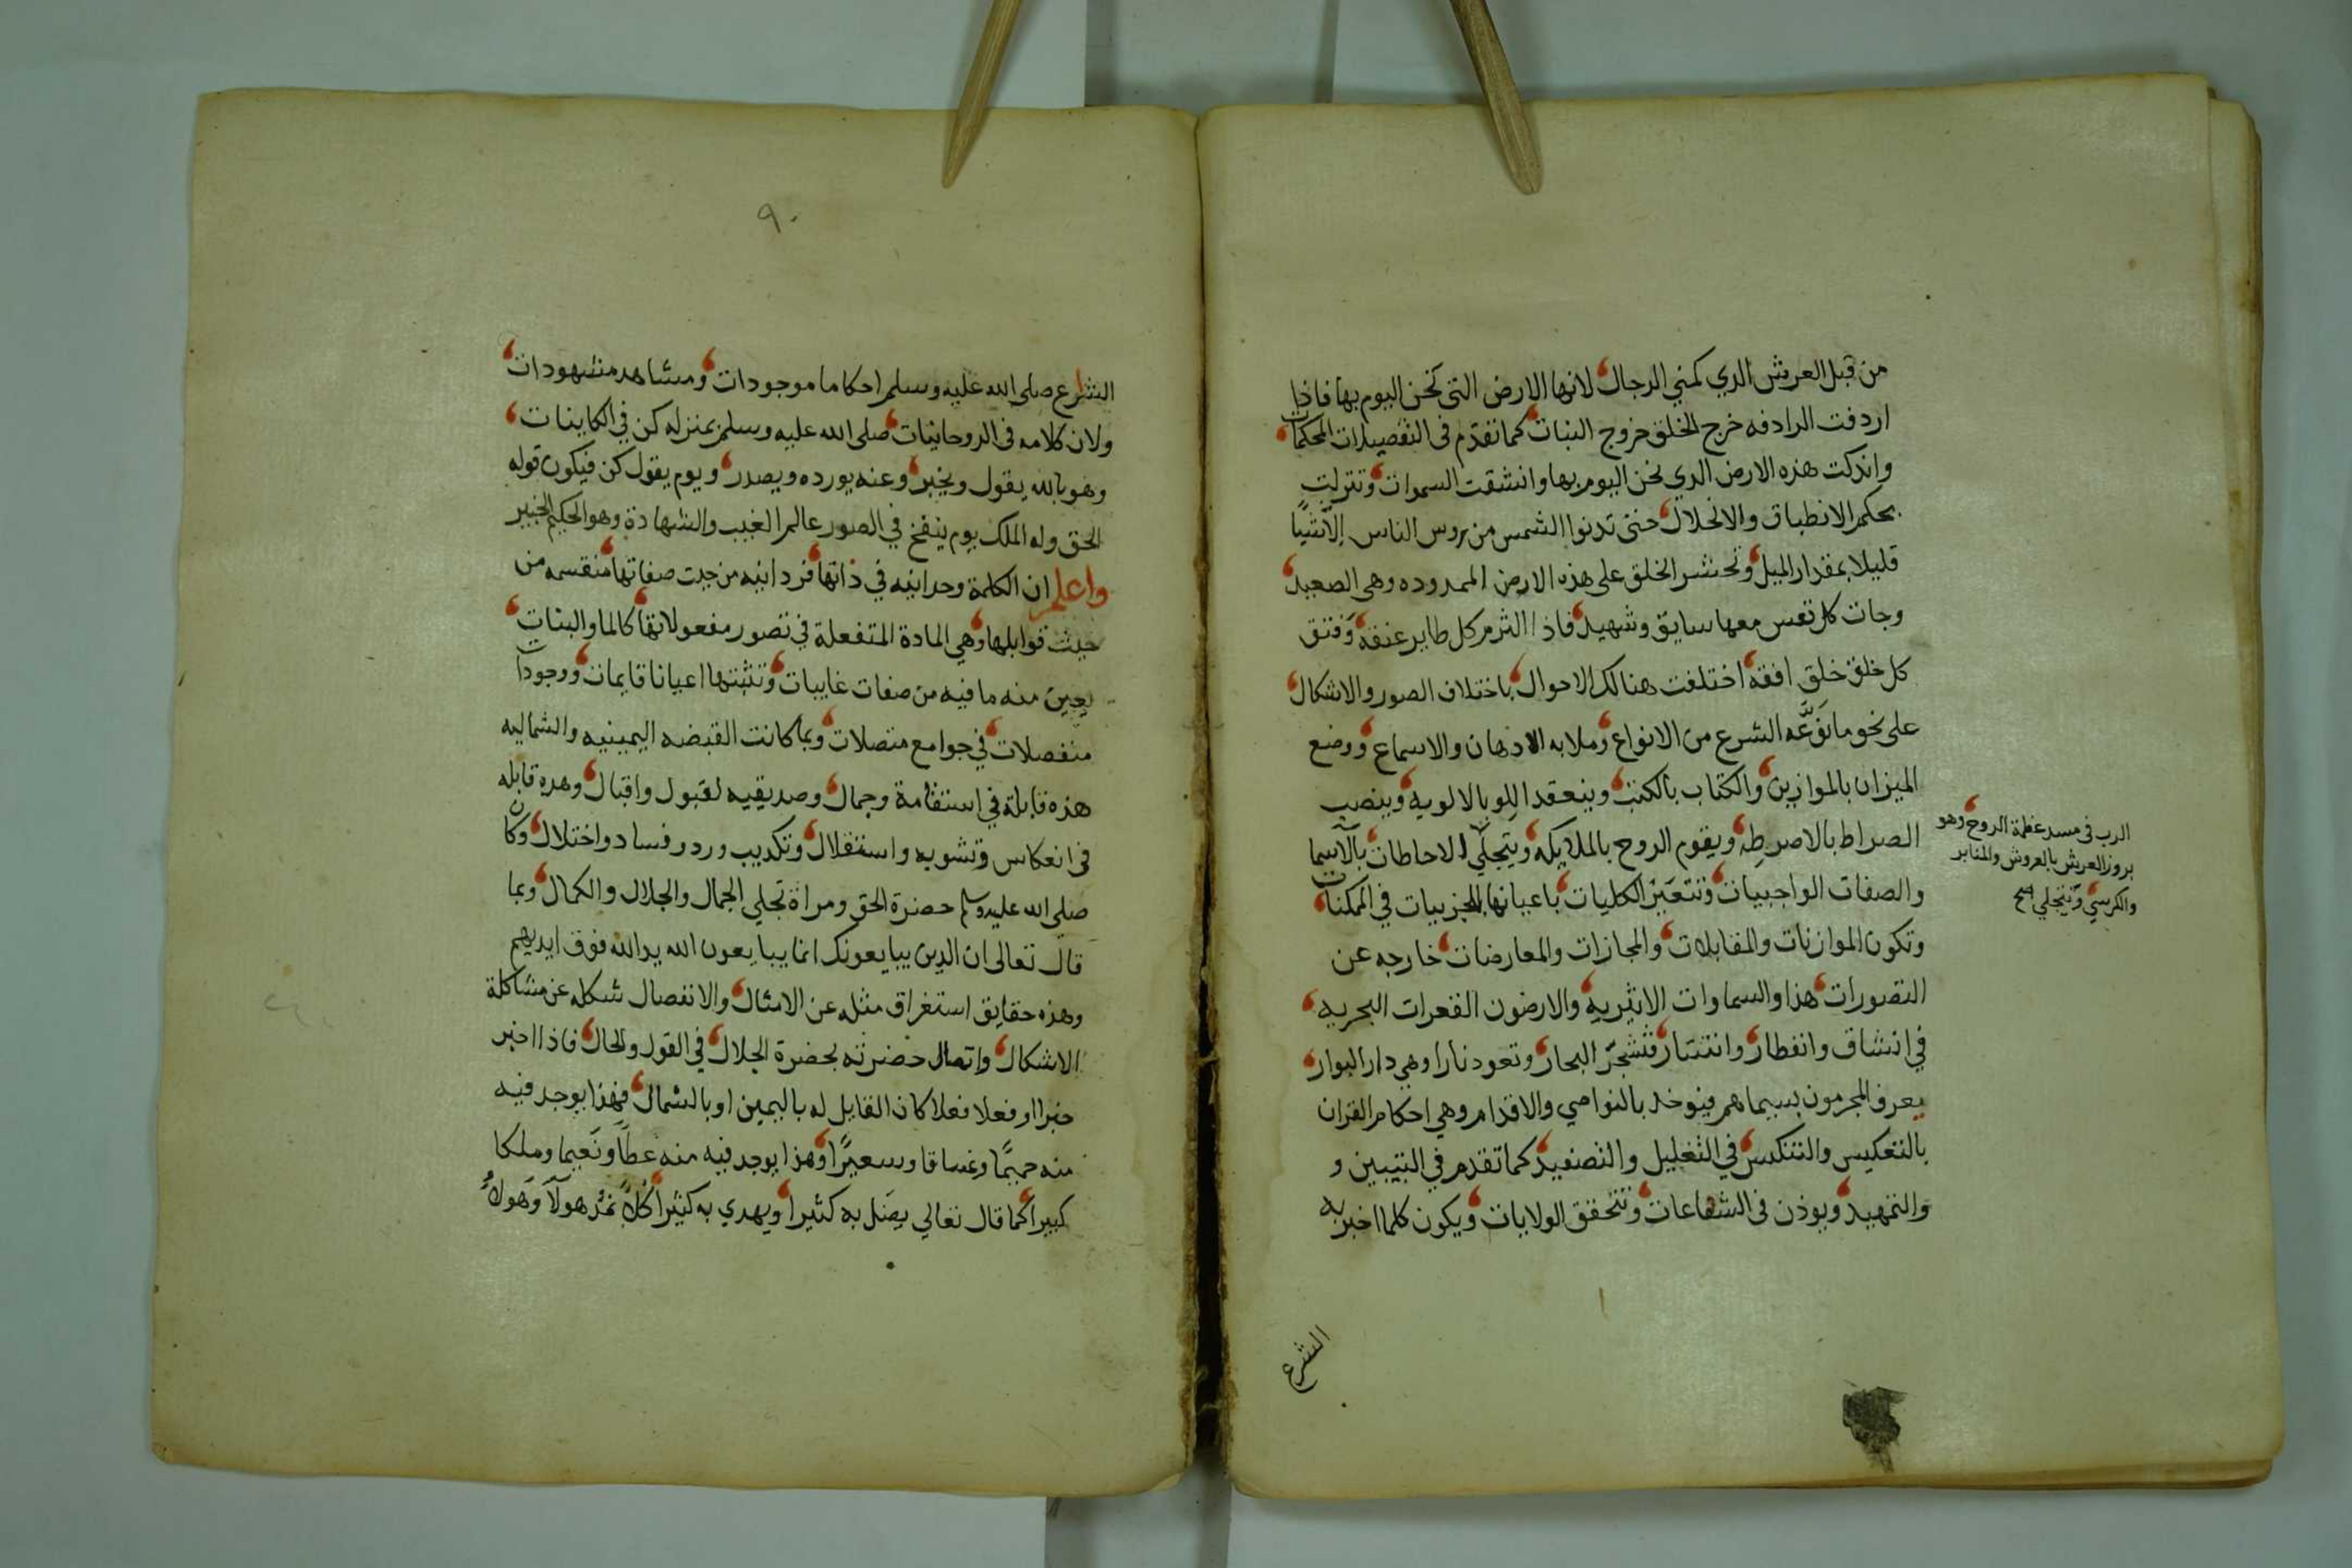 من قبل العرش الدي كمني الرجال لانها الارض التى نحن اليوم بها فاذا
اردفت الرادفه خرج الخلق خروج النبات كما تقدم فى التفصيلات المحكمات
واندكت هذه الارض الدي نحن اليوم بها وانشقت السموات وتنزلت
بحكم الانطباق والانحلال حتى تدنوا الشمس من روس الناس الاشيا
قليلا بمقدار الميل وتحشر الخلق على هذه الارض الممدوده وهى الصعيد
وجات كل نفس معها سايق وشهيد فاذا التزم كل طاير عنقه وفتق
كل خلق خلق افقه اختلفت هنالك الاحوال باختلاف الصور والاشكال
على نحو ما نوعه الشرع من الانواع وملا به الاذهان والاسماع ووضع
الميزان بالموازين والكتاب بالكتب وينعقد اللوا بالالويه وينصب
الصراط بالاصرطه ويقوم الروح بالملايكه ويتجلي الاحاطات بالاسما
والصفات الواجبيات وتتعين الكليات باعيانها الجزييات في الممكنات
وتكون الموازنات والمقابلات والمجازات والمعارضات خارجه عن
التصورات هذا والسماوات الاثيريه والارضون القعرات البحريه
في انشاق وانفطار وانتثار وتسجر البحار وتعود نارا وهي دار البوار
يعرف المجرمون بسيماهم فيوخد بالنواصي والاقدام وهي احكام القران
بالتعكيس والتنكيس في التغليل والتصفيد كما تقدم في التبيين و
والتمهيد ويوذن فى الشفاعات وتتحقق الولايات ويكون كلما اخبر به
الرب فى مسد عظمة الروح وهو
بروز العرش بالعروش والمنابر
والكرسي ويتجلي صح
الشرع
٩٠
الشارع صلى الله عليه وسلم احكاما موجودات ومشاهد مشهودات
ولان كلامه فى الروحانيات صلى الله عليه وسلم بمنزله كن في الكاينات
وهو بالله يقول ويخبر وعنه يورده ويصدر ويوم يقول كن فيكون قوله
الحق وله الملك يوم ينفخ في الصور عالم الغيب والشهادة وهو الحكيم الخبير
واعلم ان الكلمة وحدانيه في ذاتها فردانيه من حيث صفاتها منقسمه من
حيث قوابلها وهي المادة المتفعلة في تصور مفعولاتها كالما والنبات
يجين منه ما فيه من صفات غايبات وتثبتها اعيانا قايمات ووجودات
منفصلات في جوامع متصلات وبما كانت القبضه اليمينيه والشماليه
هذه قابلة في استقامة وجمال وصديقيه لقبول واقبال وهده قابله
فى انعكاس وتشويه واستقلال وتكديب ورد وفساد واختلال وكان
صلى الله عليه وسلم حضرة الحق ومراة تجلي الجمال والجلال والكمال وبما
قال تعالى ان الدين يبايعونك انما يبايعون الله يد الله فوق ايديهم
وهذه حقايق استغراق مثله عن الامثال والانفصال شكله عن مشاكلة
الاشكال واتصال حضرته بحضرة الجلال في القول والحال فاذا اخبر
خبرا او فعلا فعلا كان القابل له باليمين او بالشمال فهذا يوجد فيه
منه حميما وغساقا وسعيرا وهذا يوجد فيه منه عطا ونعيما وملكا
كبيرا كما قال تعالي يضل به كثيرا ويهدي به كثيرا كلا نمد هولا وهولا